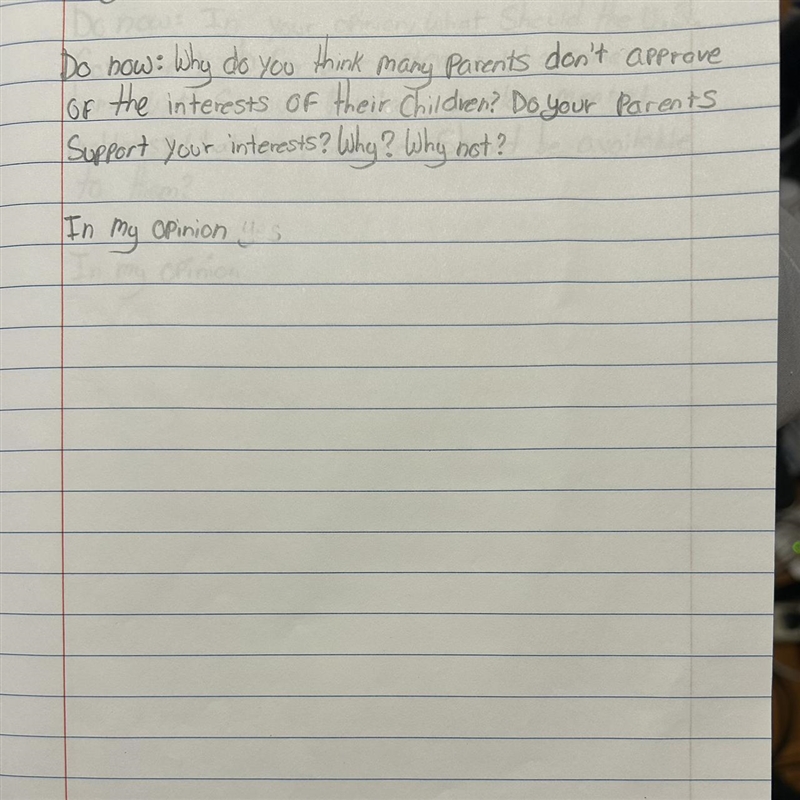 Do now: Why do you think many Parents don't approve
OF the interests OF their Children? Do your Parents
Support your interests? Why? Why not?
In my opinion